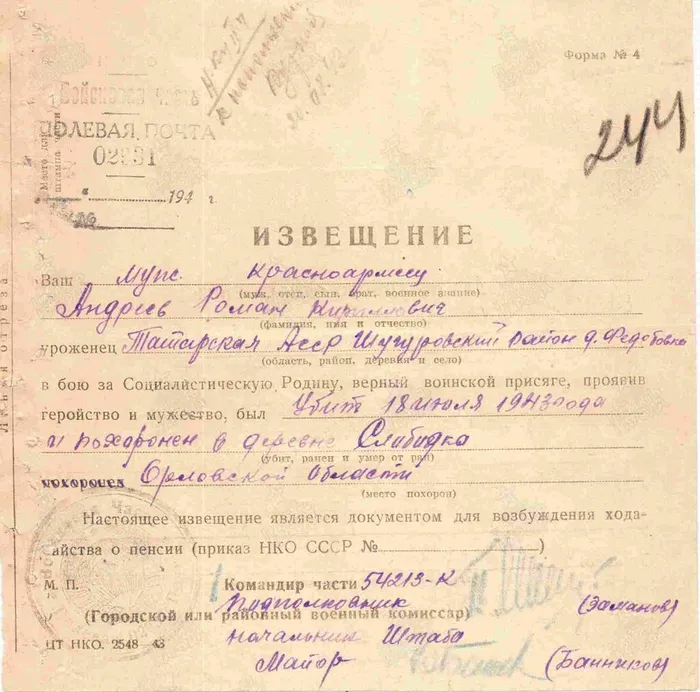 Форма № 4
244
к
Войсковая часть
ПОЛЕВАЯ ПОЧТА
02931
194 г.
№
ИЗВЕЩЕНИЕ
Ваш муж красноармеец
(муж, отец, сын, брат, военное звание)
Андреев Роман Кириллович
(фамилия, имя и отчество)
уроженец Татарская Асср Шугуровский район д. Федотовка
(область, район, деревня и село)
в бою за Социалистическую Родину, верный воинской присяге, проявив
геройство и мужество, был Убит 18 июля 1943 года
и похоронен в деревне Слабидка
(убит, ранен и умер от ран)
похоронен Орловской области
(место похорон)
Настоящее извещение является документом для возбуждения хода-
айства о пенсии (приказ НКО СССР № )
М. П.
Командир части 54213-К
подполковник (Заманов)
(Городской или районный военный комиссар)
ЦТ НКО. 2548-43
начальник Штаба
Майор (Банников)
Линия отреза